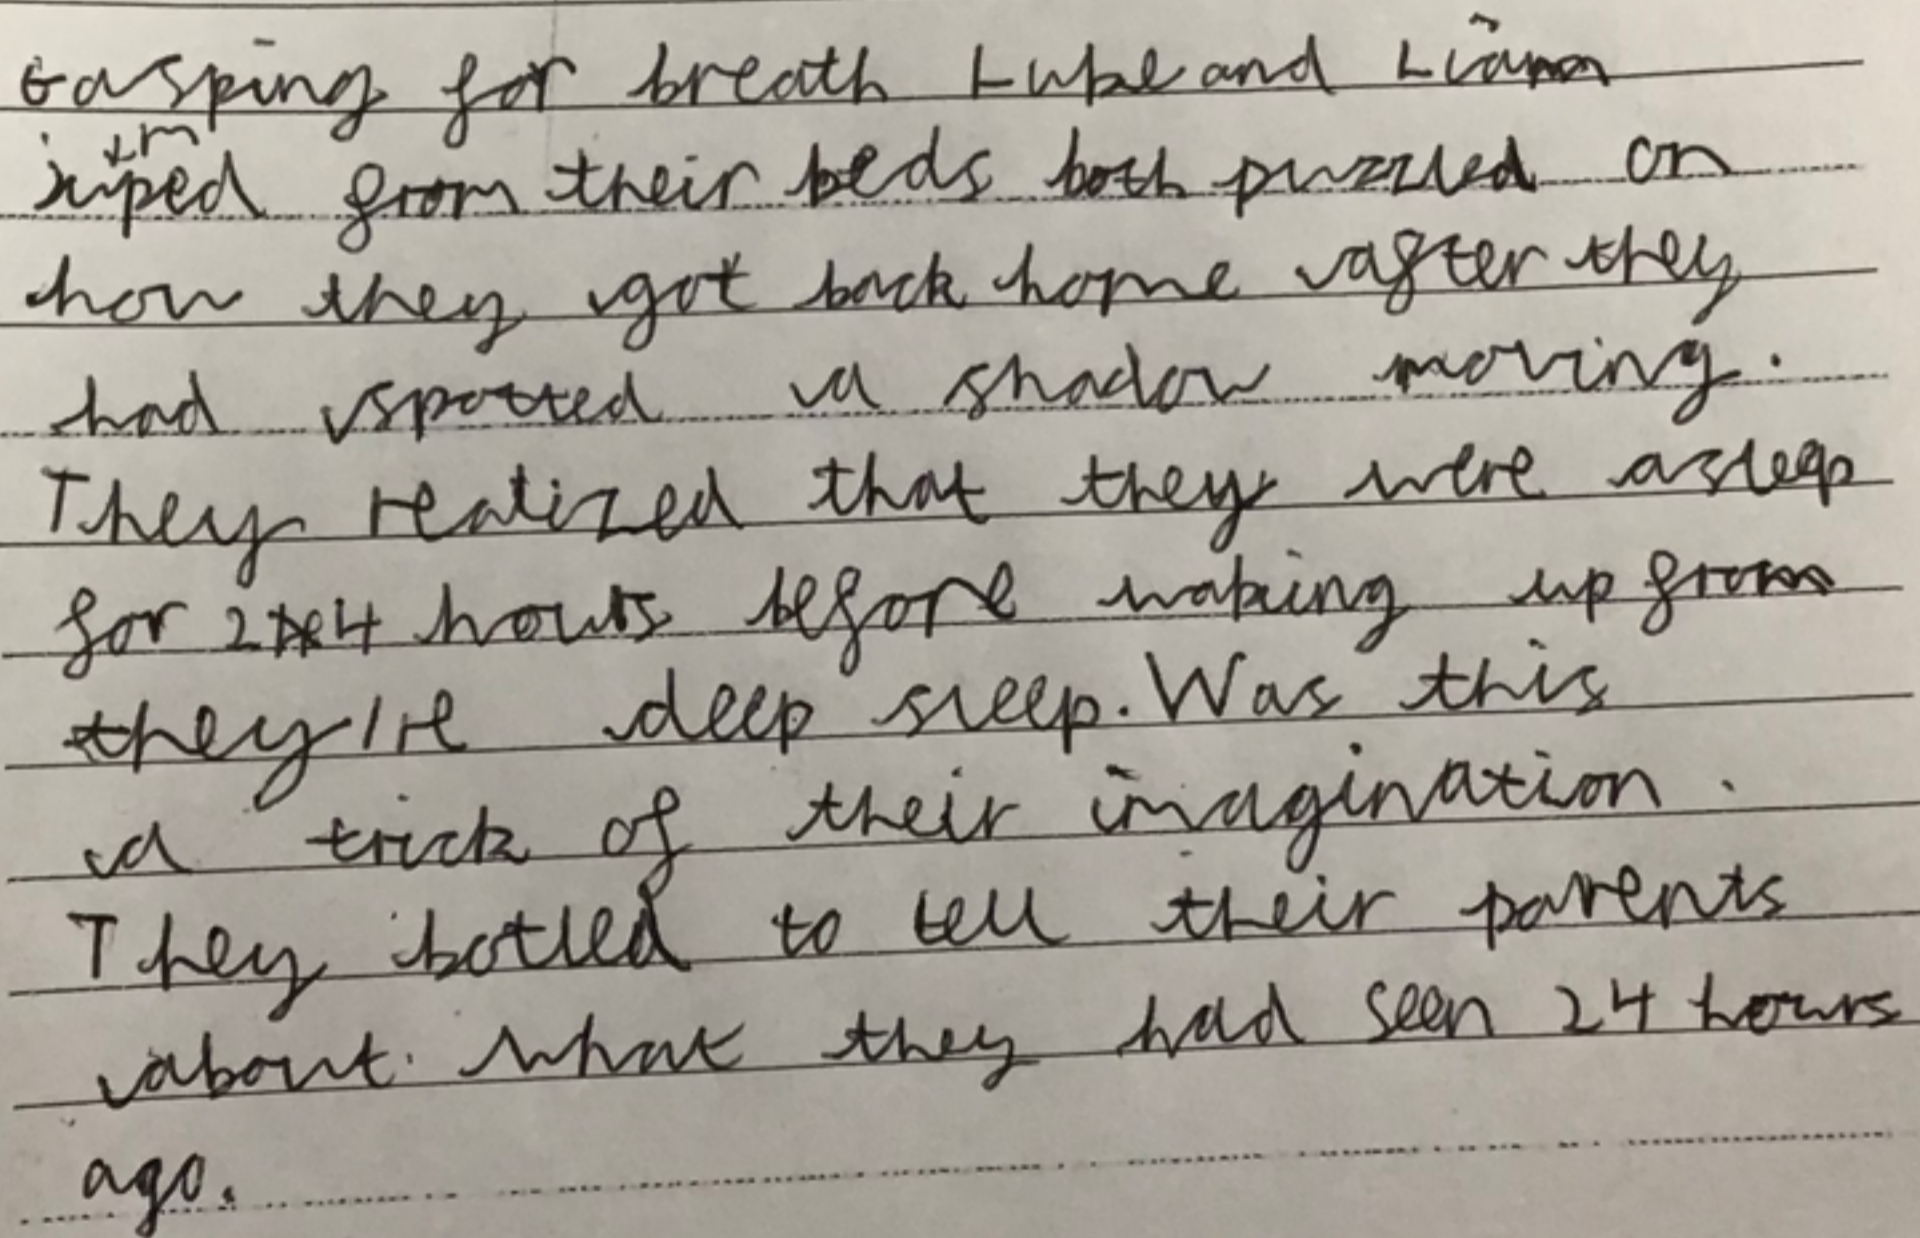 Gasping for breath Luke and Liam
jumped from their beds both puzzled on
how they got back home after they
had spotted a shadow moving.
They realized that they were asleep
for 24 hours before waking up from
they're deep sleep. Was this
a trick of their imagination.
They botled to tell their parents
about what they had seen 24 hours
ago.